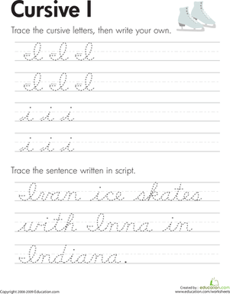 Cursive I
Trace the cursive letters, then write your own.
I I I
I I I
i i i
i i i
Trace the sentence written in script.
Ivan ice skates
with Inna in
Indiana.
education.com